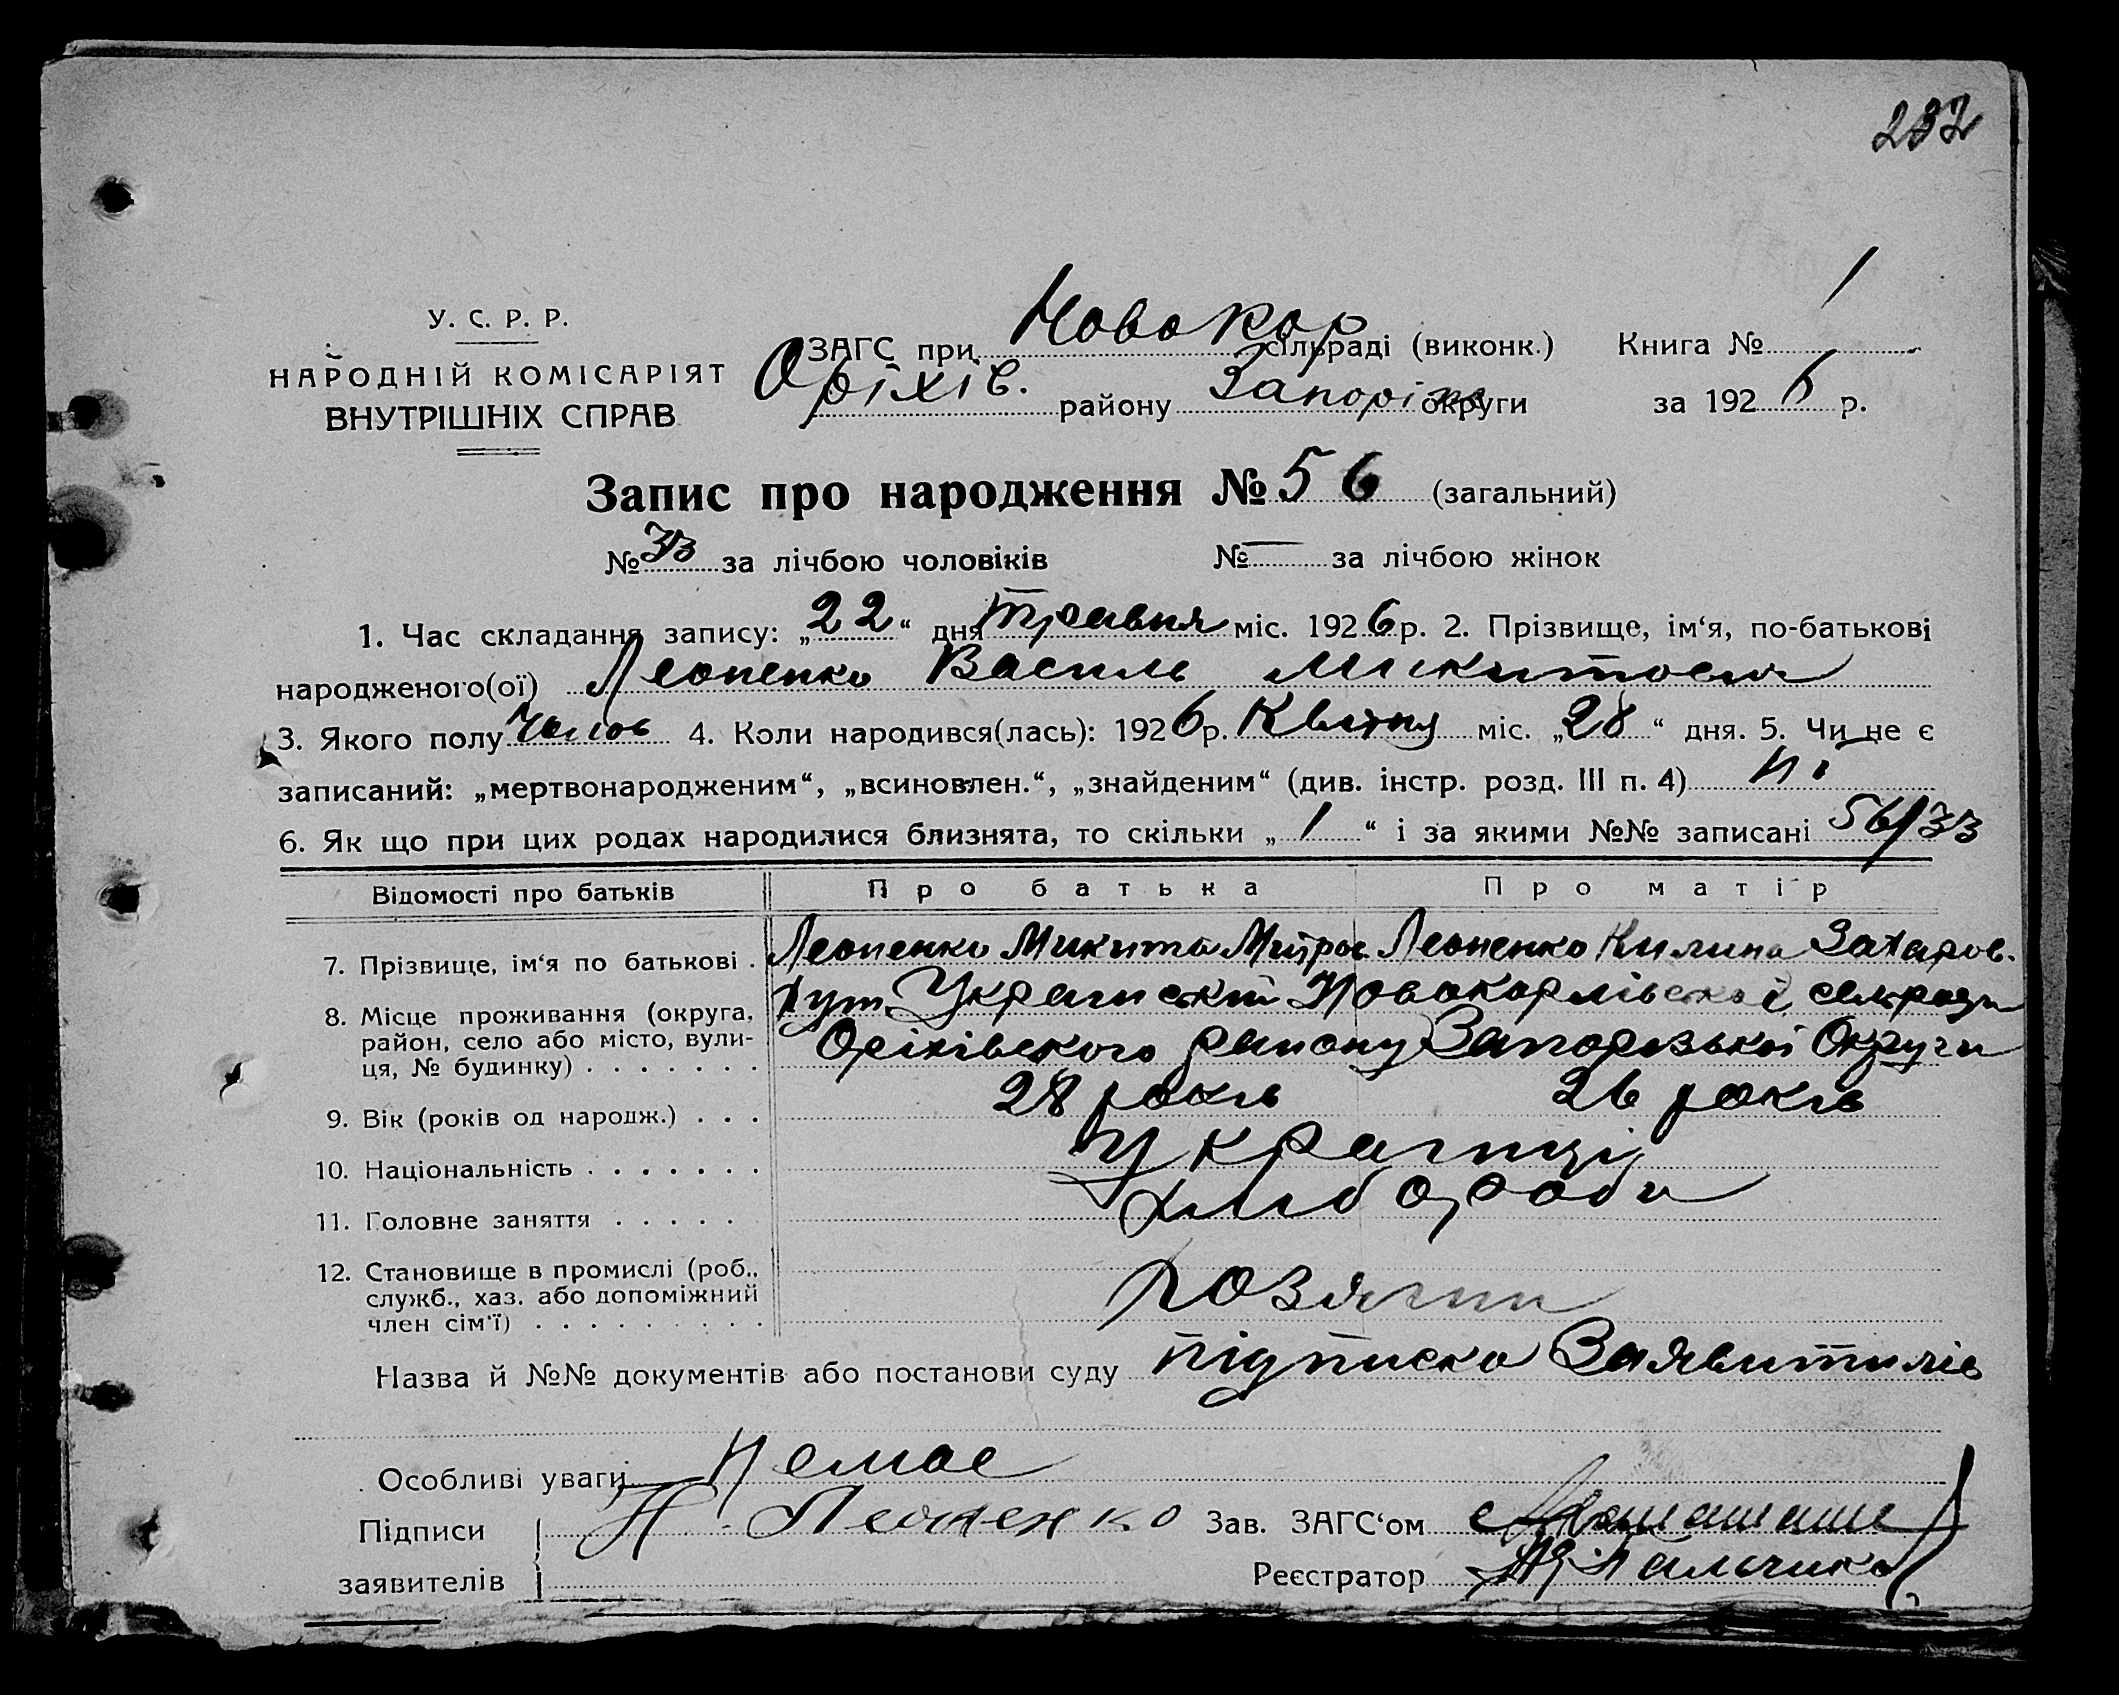 232
У. С. Р. Р.
НАРОДНІЙ КОМІСАРІЯТ
ВНУТРІШНІХ СПРАВ
ЗАГС при Новокар сільраді (виконк.) Книга № 1
Оріхів. району Запоріж округи за 1926 р.
Запис про народження № 56 (загальний)
№ 33 за лічбою чоловіків № — за лічбою жінок
1. Час складання запису: „22“ дня травня міс. 1926 р. 2. Прізвище, ім‘я, по-батькові
народженого(ої) Леоненко Василь Микитович
3. Якого полу Чолов 4. Коли народився(лась): 1926 р. Квітня міс. „28“ дня. 5. Чи не є
записаний: „мертвонародженим“, „всиновлен.“, „знайденим“ (див. інстр. розд. III п. 4) ні
6. Як що при цих родах народилися близнята, то скільки „1“ і за якими №№ записані 56/33
Відомості про батьків Про батька Про матір
7. Прізвище, ім‘я по батькові . Леоненко Микита Митроф. Леоненко Килина Захаров.
8. Місце проживання (округа, хут. Украинский Новокарлівської сельради
район, село або місто, вули- Оріхівського району Запорізької Округи
ця, № будинку) . . . . . . .
9. Вік (років од народж.) . . . 28 років 26 років
10. Національність . . . . . . . Українці
11. Головне заняття . . . . . хлібороби
12. Становище в промислі (роб.,
служб., хаз. або допоміжний хозяини
член сім‘ї) . . . . . . . . .
Назва й №№ документів або постанови суду підписка Заявителів
Особливі уваги Немає
Підписи Н. Леоненко Зав. ЗАГС‘ом
заявителів Реєстратор